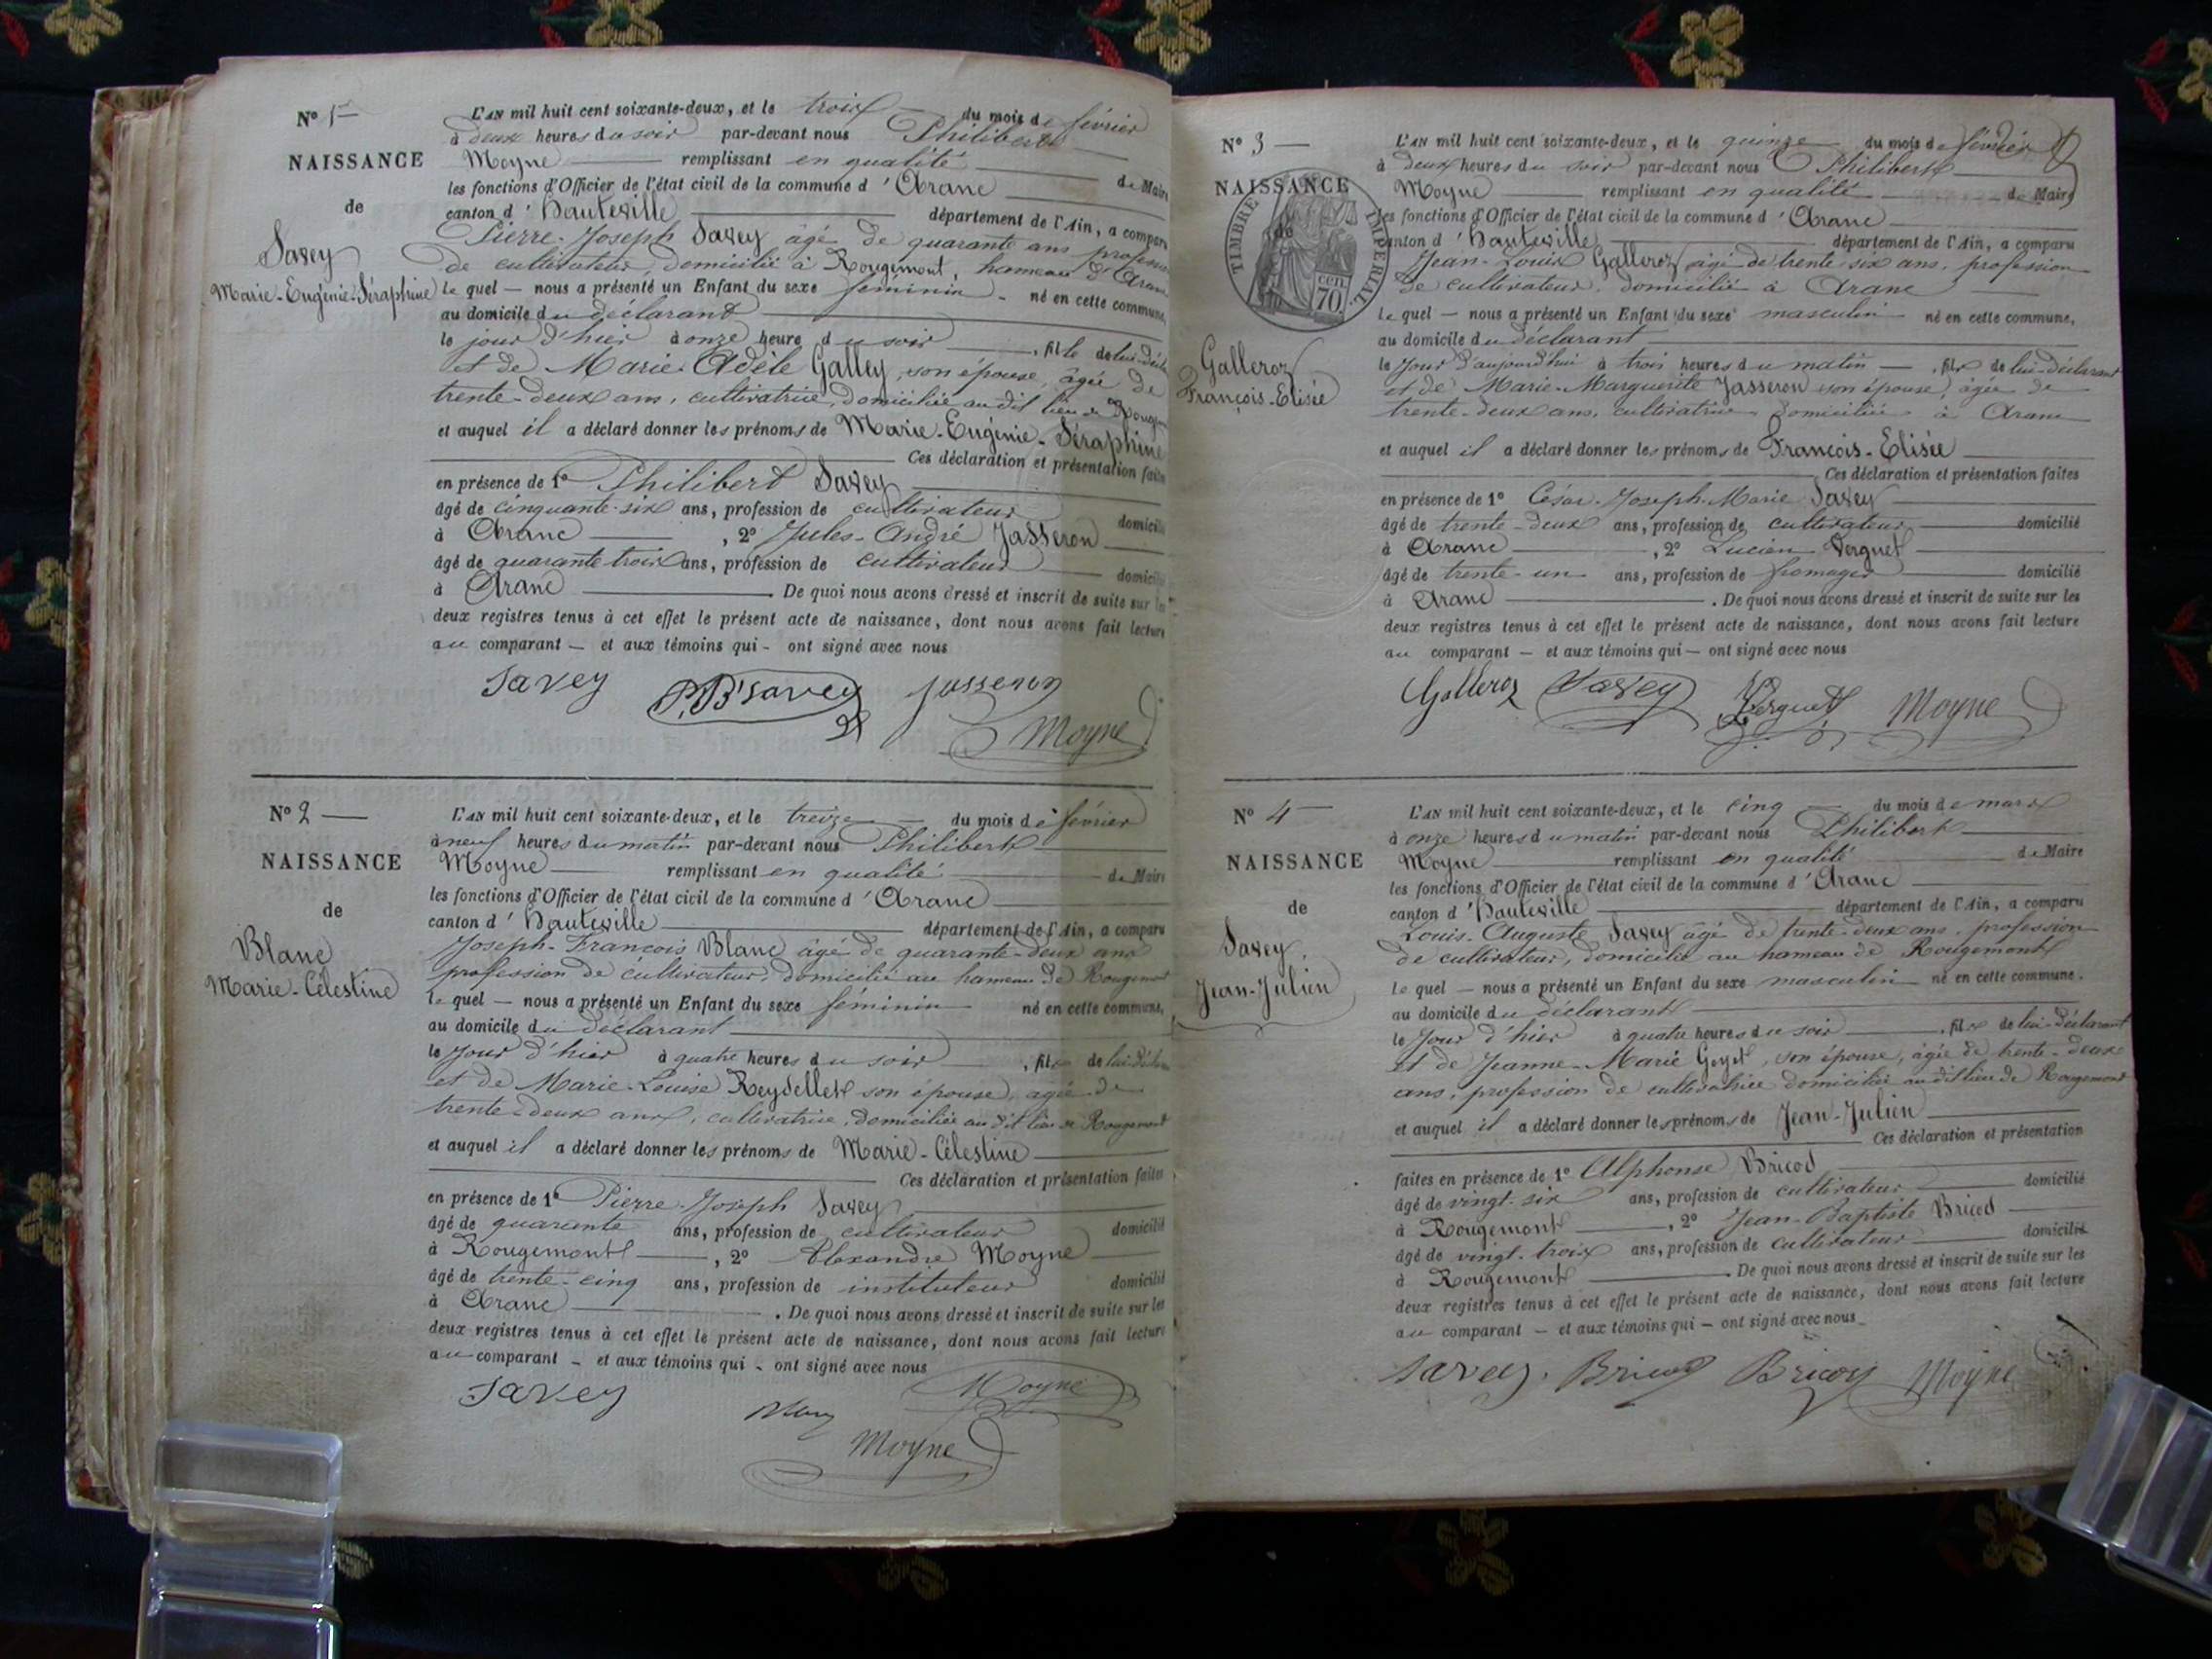 Nº 1
NAISSANCE
de
Savey
Marie-Eugénie-Séraphine
L'AN mil huit cent soixante-deux, et le trois du mois de février
à deux heures du soir par-devant nous Philibert
Moyne remplissant en qualité de Maire
les fonctions d'Officier de l'état civil de la commune d'Aranc
canton d'Hauteville département de l'Ain, a comparu
Pierre-Joseph Savey âgé de quarante ans profession
de cultivateur, domicilié à Rougemont, hameau d'Aranc
le quel — nous a présenté un Enfant du sexe féminin né en cette commune,
au domicile du déclarant
le jour d'hier à onze heure du soir, fille de lui déclarant
et de Marie-Adèle Galley, son épouse, âgée de
trente-deux ans, cultivatrice, domiciliée au dit lieu de Rougemont
et auquel il a déclaré donner les prénoms de Marie-Eugénie-Séraphine
Ces déclaration et présentation faites
en présence de 1º Philibert Savey
âgé de cinquante-six ans, profession de cultivateur domicilié
à Aranc, 2º Jules-André Jasseron
âgé de quarante trois ans, profession de cultivateur domicilié
à Aranc. De quoi nous avons dressé et inscrit de suite sur les
deux registres tenus à cet effet le présent acte de naissance, dont nous avons fait lecture
au comparant — et aux témoins qui - ont signé avec nous
Savey P. Bt Savey Jasseron
Moyne
Nº 2
NAISSANCE
de
Blanc
Marie-Célestine
L'AN mil huit cent soixante-deux, et le treize du mois de février
à neuf heures du matin par-devant nous Philibert
Moyne remplissant en qualité de Maire
les fonctions d'Officier de l'état civil de la commune d'Aranc
canton d'Hauteville département de l'Ain, a comparu
Joseph-François Blanc âgé de quarante-deux ans
profession de cultivateur, domicilié au hameau de Rougemont
le quel — nous a présenté un Enfant du sexe féminin né en cette commune,
au domicile du déclarant
le jour d'hier à quatre heures du soir, fille de lui déclarant
et de Marie-Louise Reydellet son épouse, agée de
trente-deux ans, cultivatrice, domiciliée au dit lieu de Rougemont
et auquel il a déclaré donner les prénoms de Marie-Célestine
Ces déclaration et présentation faites
en présence de 1º Pierre-Joseph Savey
âgé de quarante ans, profession de cultivateur domicilié
à Rougemont, 2º Alexandre Moyne
âgé de trente-cinq ans, profession de instituteur domicilié
à Aranc. De quoi nous avons dressé et inscrit de suite sur les
deux registres tenus à cet effet le présent acte de naissance, dont nous avons fait lecture
au comparant - et aux témoins qui - ont signé avec nous
Savey Blanc Moyne
Moyne
Nº 3
NAISSANCE
de
TIMBRE IMPERIAL
cen.
70.
Galleroz
François-Elisée
L'AN mil huit cent soixante-deux, et le quinze du mois de février
à deux heures du soir par-devant nous Philibert
Moyne remplissant en qualité de Maire
les fonctions d'Officier de l'état civil de la commune d'Aranc
canton d'Hauteville département de l'Ain, a comparu
Jean-Louis Galleroz âgé de trente-six ans, profession
de cultivateur, domicilié à Aranc
le quel — nous a présenté un Enfant du sexe masculin né en cette commune,
au domicile du déclarant
le jour d'aujourd'hui à trois heures du matin, fils de lui-déclarant
et de Marie-Marguerite Jasseron son épouse, âgée de
trente-deux ans, cultivatrice domiciliée à Aranc
et auquel il a déclaré donner les prénoms de François-Elisée
Ces déclaration et présentation faites
en présence de 1º César-Joseph-Marie Savey
âgé de trente-deux ans, profession de cultivateur domicilié
à Aranc, 2º Lucien Verguet
âgé de trente-un ans, profession de fromager domicilié
à Aranc. De quoi nous avons dressé et inscrit de suite sur les
deux registres tenus à cet effet le présent acte de naissance, dont nous avons fait lecture
au comparant — et aux témoins qui — ont signé avec nous
Galleroz Savey Verguet Moyne
Nº 4
NAISSANCE
de
Savey,
Jean-Julien
L'AN mil huit cent soixante-deux, et le cinq du mois de mars
à onze heures du matin par-devant nous Philibert
Moyne remplissant en qualité de Maire
les fonctions d'Officier de l'état civil de la commune d'Aranc
canton d'Hauteville département de l'Ain, a comparu
Louis-Auguste Savey âgé de trente-deux ans, profession
de cultivateur, domicilié au hameau de Rougemont
le quel — nous a présenté un Enfant du sexe masculin né en cette commune.
au domicile du déclarant
le jour d'hier à quatre heures du soir, fils de lui-déclarant
et de Jeanne-Marie Goyet, son épouse, âgée de trente-deux
ans, profession de cultivatrice domiciliée au dit lieu de Rougemont
et auquel il a déclaré donner les prénoms de Jean-Julien
Ces déclaration et présentation
faites en présence de 1º Alphonse Bricod
âgé de vingt-six ans, profession de cultivateur domicilié
à Rougemont, 2º Jean-Baptiste Bricod
âgé de vingt-trois ans, profession de cultivateur domicilié
à Rougemont. De quoi nous avons dressé et inscrit de suite sur les
deux registres tenus à cet effet le présent acte de naissance, dont nous avons fait lecture
au comparant — et aux témoins qui — ont signé avec nous
Savey. Bricod Bricod Moyne